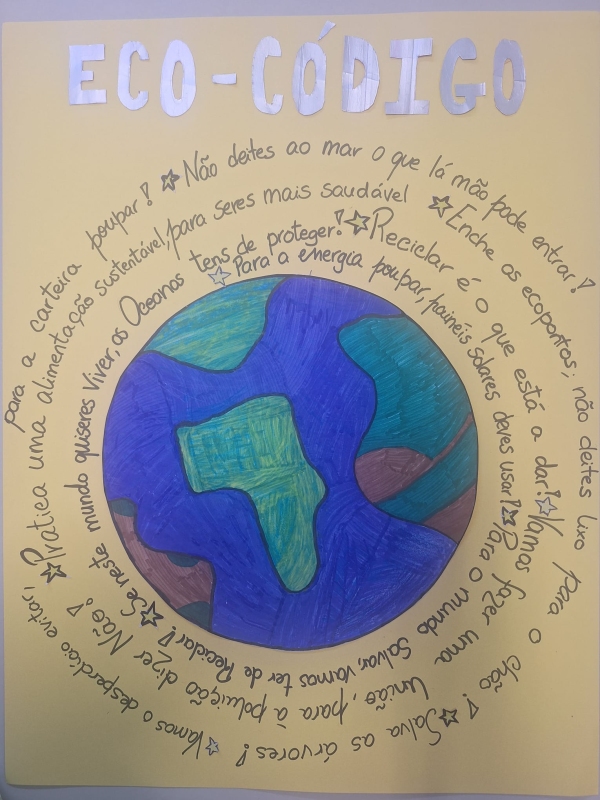 ECO-CÓDIGO
Para a energia poupar, painéis solares deves usar!
Para o mundo Salvar, vamos ter de Reciclar!
Se neste mundo quiseres viver, os Oceanos tens de proteger!
Reciclar é o que está a dar!
Vamos fazer uma União, para à poluição dizer Não!
Pratica uma alimentação sustentável, para seres mais saudável
Enche os ecopontos; não deites lixo para o chão!
Salva as árvores!
Vamos o desperdício evitar, para a carteira poupar!
Não deites ao mar o que lá não pode entrar!